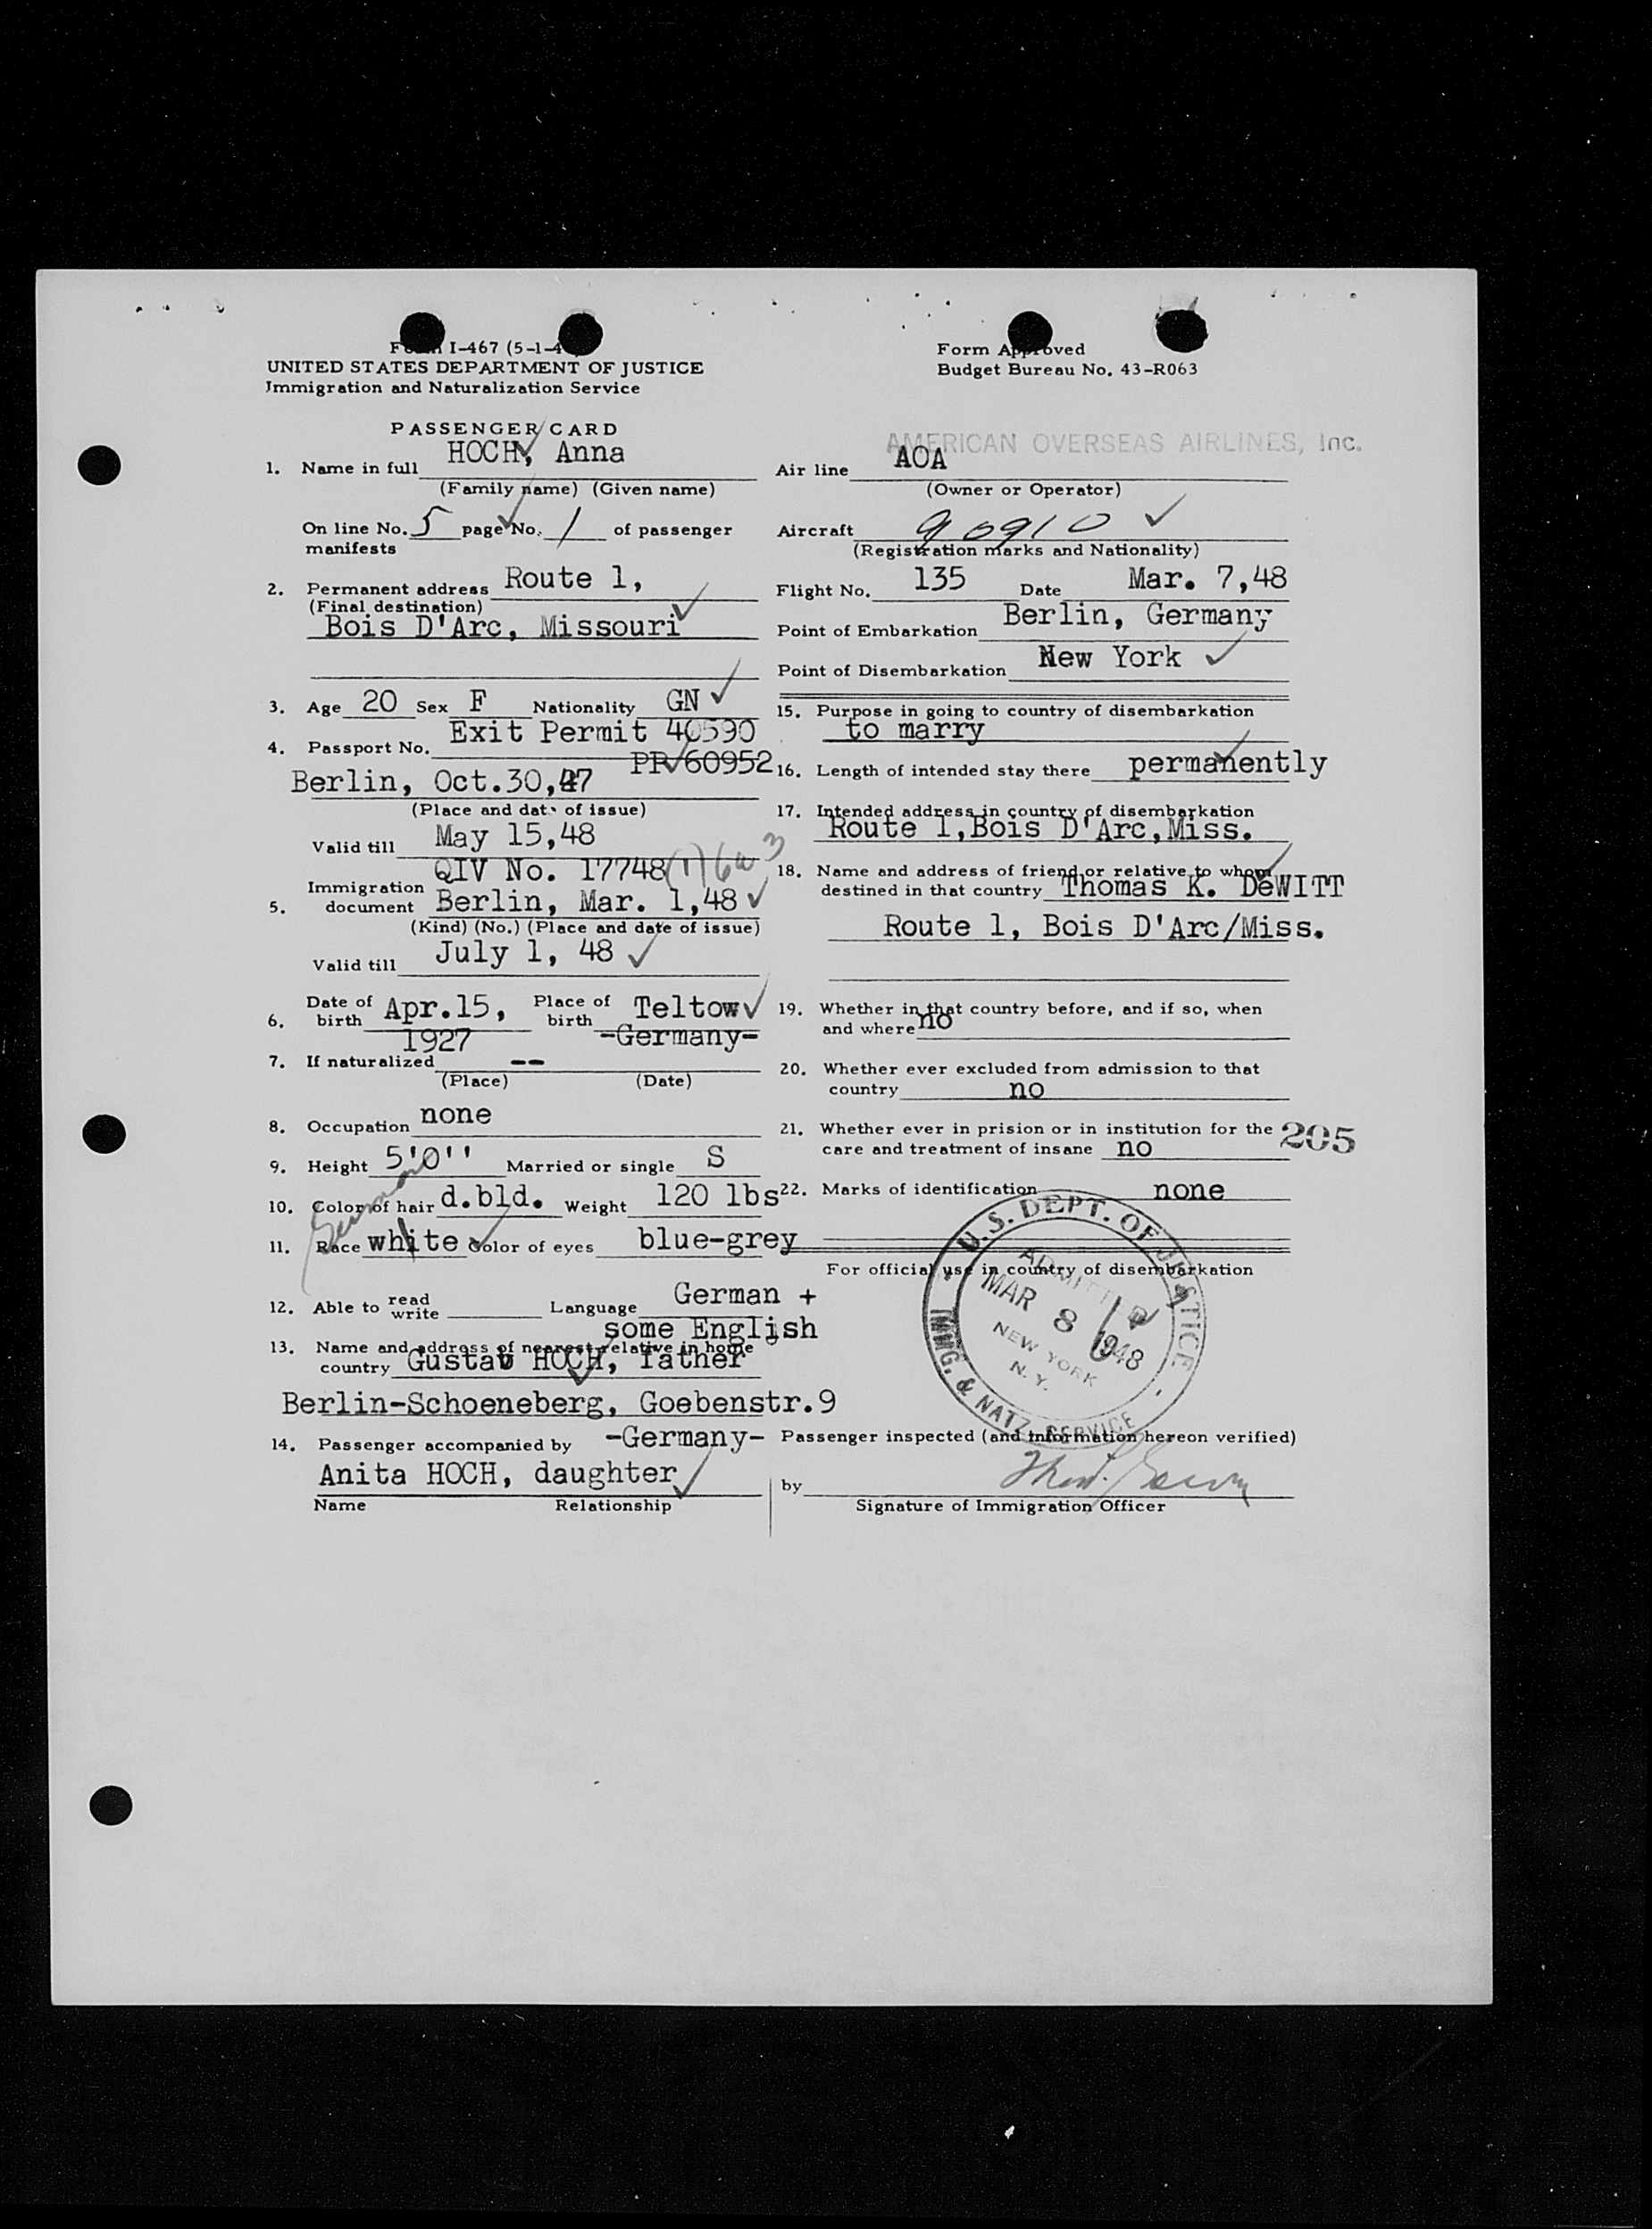 Form I-467 (5-1-4
UNITED STATES DEPARTMENT OF JUSTICE
Immigration and Naturalization Service
Form Approved
Budget Bureau No. 43-R063
PASSENGER CARD
1. Name in full HOCH, Anna
(Family name) (Given name)
On line No. 5 page No. 1 of passenger
manifests
2. Permanent address Route 1,
(Final destination)
Bois D'Arc, Missouri
3. Age 20 Sex F Nationality GN
4. Passport No. Exit Permit 40590
PR 60952
Berlin, Oct.30,47
(Place and date of issue)
Valid till May 15,48
QIV No. 17748
5. Immigration document Berlin, Mar. 1,48
(Kind) (No.) (Place and date of issue)
Valid till July 1, 48
6. Date of birth Apr.15, 1927 Place of birth Teltow
-Germany-
7. If naturalized --
(Place) (Date)
8. Occupation none
9. Height 5'0'' Married or single S
10. Color of hair d.bld. Weight 120 lbs
German
11. Race white Color of eyes blue-grey
12. Able to read write Language German +
some English
13. Name and address of nearest relative in home
country Gustav HOCH, father
Berlin-Schoeneberg, Goebenstr.9
-Germany-
14. Passenger accompanied by
Anita HOCH, daughter
Name Relationship
AMERICAN OVERSEAS AIRLINES, Inc.
Air line AOA
(Owner or Operator)
Aircraft 90910
(Registration marks and Nationality)
Flight No. 135 Date Mar. 7,48
Point of Embarkation Berlin, Germany
Point of Disembarkation New York
15. Purpose in going to country of disembarkation
to marry
16. Length of intended stay there permanently
17. Intended address in country of disembarkation
Route 1,Bois D'Arc,Miss.
18. Name and address of friend or relative to whom
destined in that country Thomas K. DeWITT
Route 1, Bois D'Arc/Miss.
19. Whether in that country before, and if so, when
and where no
20. Whether ever excluded from admission to that
country no
21. Whether ever in prision or in institution for the
care and treatment of insane no
205
22. Marks of identification none
For official use in country of disembarkation
U.S. DEPT. OF JUSTICE
ADMITTED
MAR 8 1948
NEW YORK
N.Y.
IMMG. & NATZ. SERVICE
Passenger inspected (and information hereon verified)
by
Signature of Immigration Officer